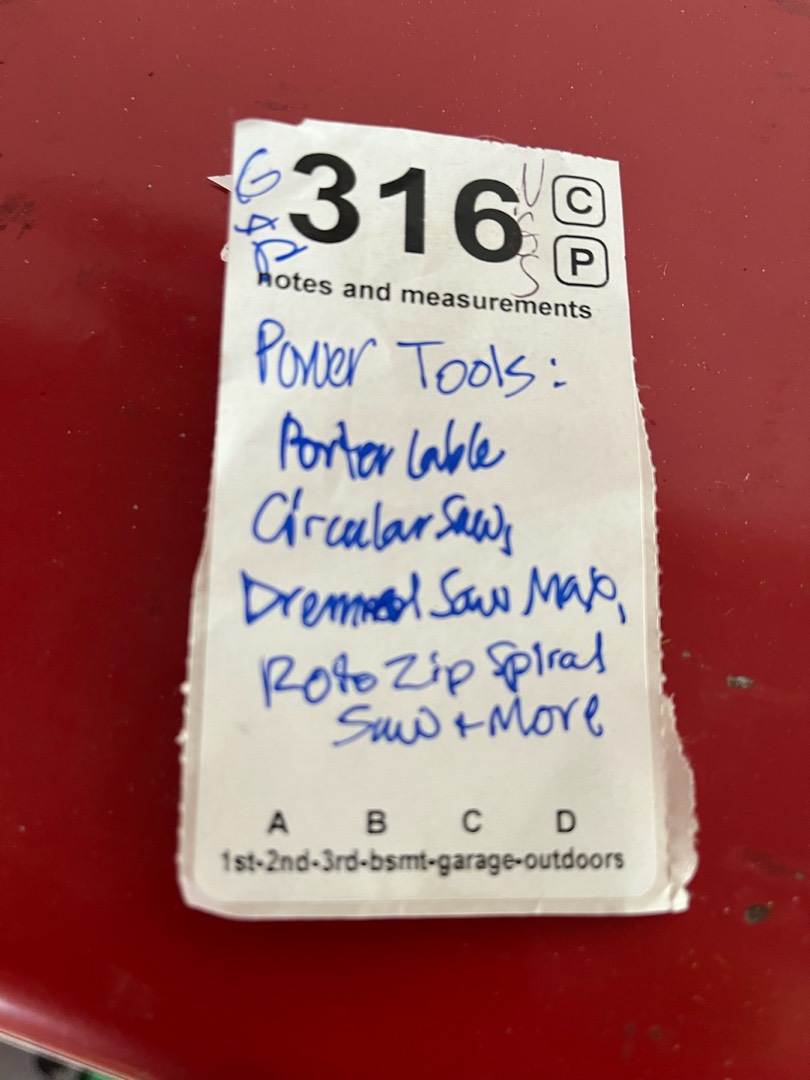 GAR
316
C
P
notes and measurements
Power Tools:
Porter Cable
Circular Saw,
Dremel Saw Max,
RotoZip Spiral
Saw + More
A B C D
1st-2nd-3rd-bsmt-garage-outdoors